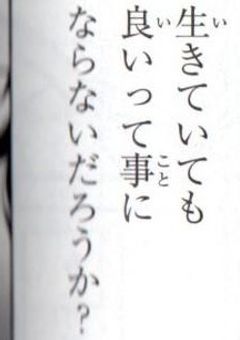 生きていても
良いって事に
ならないだろうか?